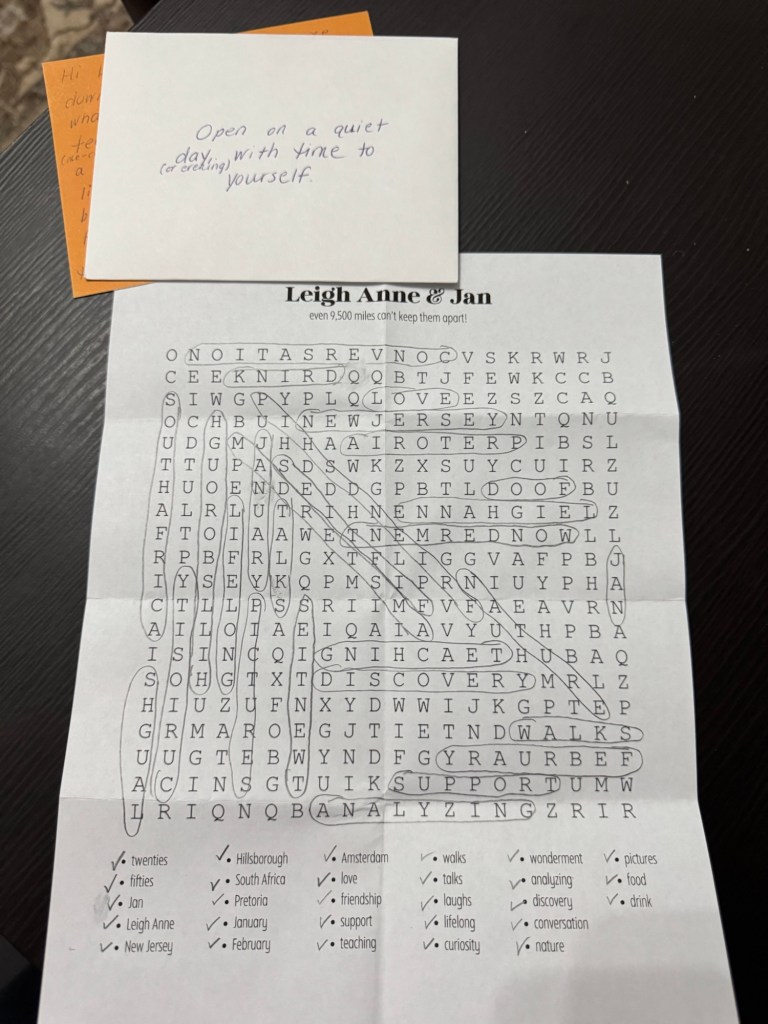 Hi
Open on a quiet
day, with time to
(or evening)
yourself.
Leigh Anne & Jan
even 9,500 miles can't keep them apart!
O N O I T A S R E V N O C V S K R W R J
C E E K N I R D Q Q B T J F E W K C C B
S I W G P Y P L Q L O V E E Z S Z C A Q
O C H B U I N E W J E R S E Y N T Q N U
U D G M J H H A A I R O T E R P I B S L
T T U P A S D S W K Z X S U Y C U I R Z
H U O E N D E D D G P B T L D O O F B U
A L R L U T R I H N E N N A H G I E L Z
F T O I A A W E T N E M R E D N O W L L
R P B F R L G X T F L I G G V A F P B J
I Y S E Y K Q P M S I P R N I U Y P H A
C T L L P S S R I I M F V F A E A V R N
A I L O I A E I Q A I A V Y U T H P B A
I S I N C Q I G N I H C A E T H U B A Q
S O H G T X T D I S C O V E R Y M R L Z
H I U Z U F N X Y D W W I J K G P T E P
G R M A R O E G J T I E T N D W A L K S
U U G T E B W Y N D F G Y R A U R B E F
A C I N S G T U I K S U P P O R T U M W
L R I Q N Q B A N A L Y Z I N G Z R I R
• twenties
• fifties
• Jan
• Leigh Anne
• New Jersey
• Hillsborough
• South Africa
• Pretoria
• January
• February
• Amsterdam
• love
• friendship
• support
• teaching
• walks
• talks
• laughs
• lifelong
• curiosity
• wonderment
• analyzing
• discovery
• conversation
• nature
• pictures
• food
• drink